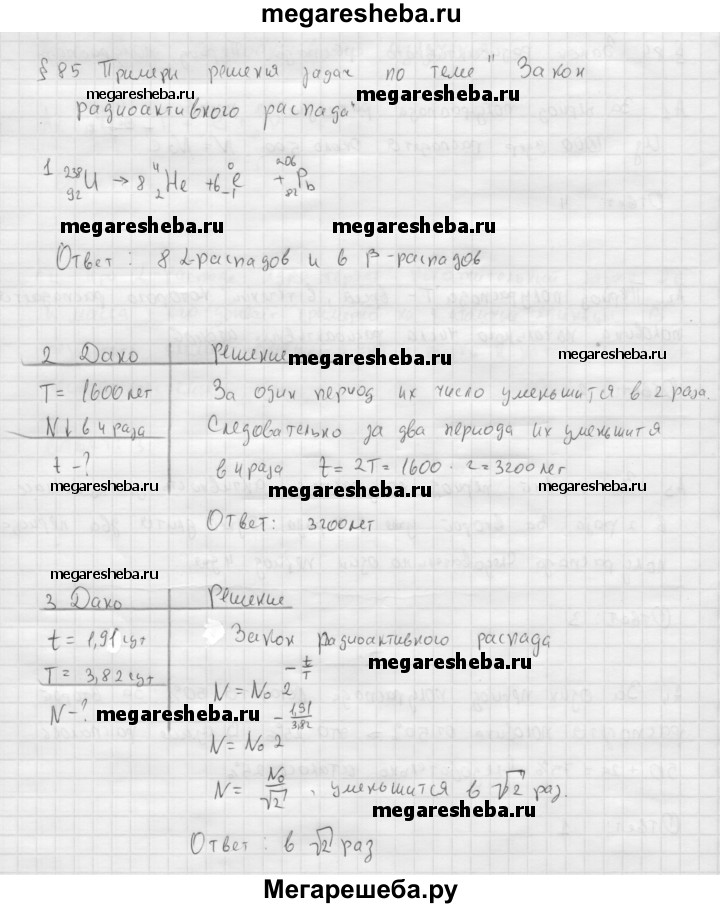 megaresheba.ru
§ 85 Примеры решения задач по теме "Закон
megaresheba.ru
радиоактивного распада"
1 ²³⁸₉₂U → 8 ⁴₂He + 6 ⁰₋₁e + ²⁰⁶₈₂Pb
megaresheba.ru megaresheba.ru
Ответ: 8 α-распадов и 6 β-распадов
2 Дано Решение
megaresheba.ru megaresheba.ru
T = 1600 лет За один период их число уменьшится в 2 раза.
N↓ в 4 раза Следовательно за два периода их уменьшится
t - ? в 4 раза t = 2T = 1600 · 2 = 3200 лет
megaresheba.ru megaresheba.ru megaresheba.ru
Ответ: 3200 лет
megaresheba.ru
3 Дано Решение
t = 1,91 сут Закон радиоактивного распада
megaresheba.ru
T = 3,82 сут N = N₀ 2^(-t/T)
N - ? megaresheba.ru
N = N₀ 2^(-1,91/3,82)
N = N₀/√2, уменьшится в √2 раз.
megaresheba.ru
Ответ: в √2 раз
Мегарешеба.ру